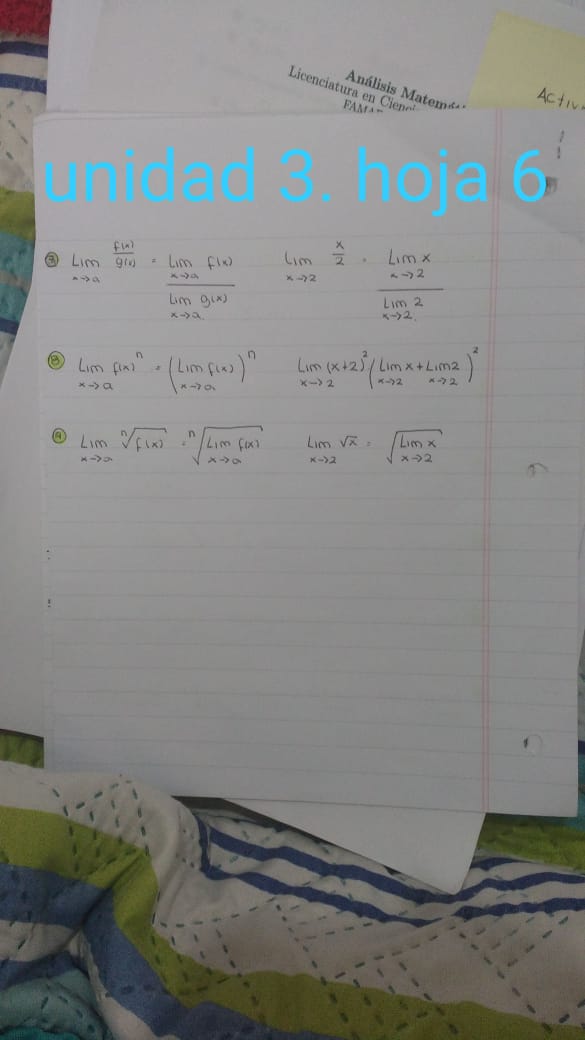 Análisis Matemá
Licenciatura en Cienci
FAMAF
Activ
unidad 3. hoja 6
⑦ Lim x→a f(x)/g(x) = Lim x→a f(x) / Lim x→a g(x) Lim x→2 x/2 = Lim x→2 x / Lim x→2 2
⑧ Lim x→a f(x)^n = (Lim x→a f(x))^n Lim x→2 (x+2)^2 (Lim x→2 x + Lim x→2 2)^2
⑨ Lim x→a n√f(x) = n√Lim x→a f(x) Lim x→2 √x = √Lim x→2 x